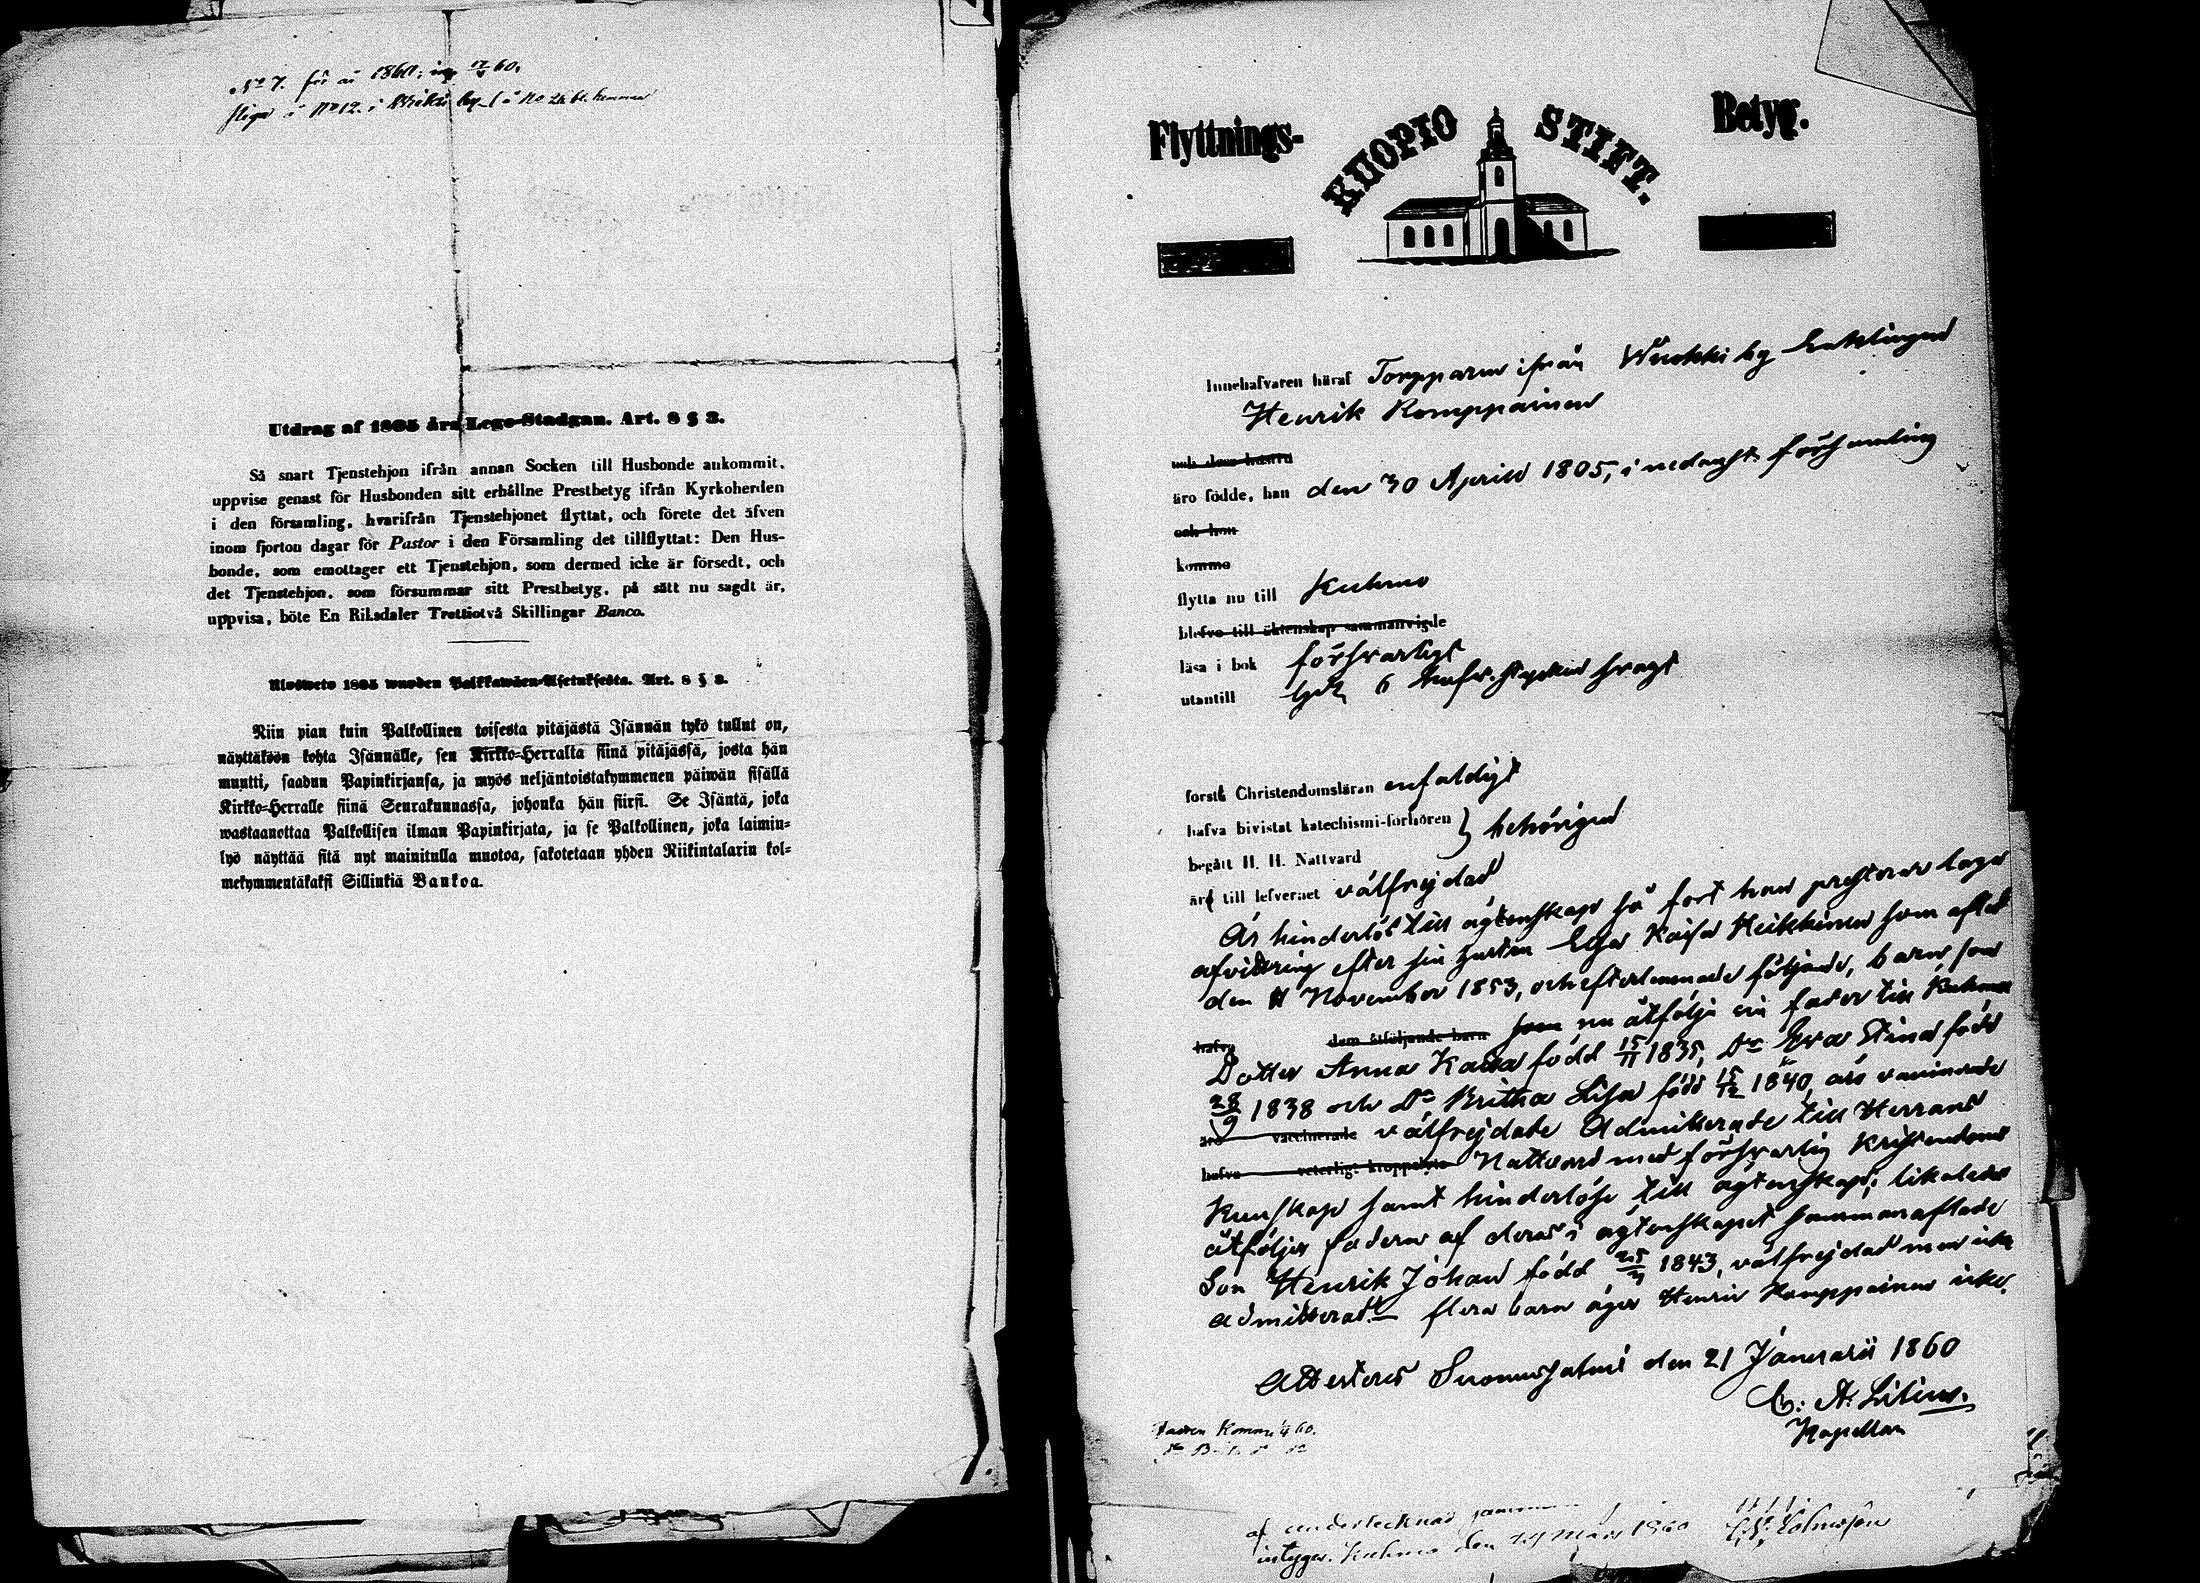 No 7. för år 1860; ing 17/4 60.
Utdrag af 1805 års Lego-Stadgan. Art. 8 § 3.
Så snart Tjenstehjon ifrån annan Socken till Husbonde ankommit,
uppvise genast för Husbonden sitt erhållne Prestbetyg ifrån Kyrkoherden
i den församling, hvarifrån Tjenstehjonet flyttat, och förete det äfven
inom fjorton dagar för Pastor i den Församling det tillflyttat: Den Hus-
bonde, som emottager ett Tjenstehjon, som dermed icke är försedt, och
det Tjenstehjon, som försummar sitt Prestbetyg, på sätt nu sagdt är,
uppvisa, böte En Riksdaler Trettiotvå Skillingar Banco.
Ulosweto 1805 wuoden Palkkawäen-Asetuksesta. Art. 8 § 3.
Niin pian kuin Palkollinen toisesta pitäjästä Isännän tykö tullut on,
näyttäköön kohta Isännälle, sen Kirkko-Herralta siinä pitäjässä, josta hän
muutti, saadun Papinkirjansa, ja myös neljäntoistakymmenen päiwän sisällä
Kirkko-Herralle siinä Seurakunnassa, johonka hän siirsi. Se Isäntä, joka
wastaanottaa Palkollisen ilman Papinkirjata, ja se Palkollinen, joka laimin-
lyö näyttää sitä nyt mainitulla muotoa, sakotetaan yhden Riikintalarin kol-
mekymmentäkaksi Sillinkiä Bankoa.
Flyttnings- KUOPIO STIFT. Betyg.
Innehafvaren häraf Torpparen ifrån Wuokki by Enklingen
Henrik Komppainen
och dess hustru
äro födde, han den 30 Aprill 1805, i nedanst. församling
och hon
komme
flytta nu till Kuhmo
blefvo till äktenskap sammanvigde
läsa i bok försvarligt
utantill 6 hufv.stycken svagt
förstå Christendomsläran enfaldigt
hafva bivistat katechismi-förhören } behörigen
begått H. H. Nattvard
äro till lefvernet välfrejdad
Är hinderlös till ägtenskap så fort han presterar laga
afvittring efter sin hustru Elsa Kaisa Heikkinen som afled
den 11 November 1853, och efterlemnade följande barn som
hafva dem åtföljande barn som nu åtfölja sin fader till Kuhmo
Dotter Anna Kaisa född 15/11 1835, Dr Eva Stina född
28/9 1838 och Dr Britha Lisa född 15/12 1840, äro vaccinerade
äro vaccinerade välfrejdade Admitterade till Herrans
hafva veterligt kroppslyte Nattvard med försvarlig Kristendoms
Kunskap samt hinderlösa till ägtenskap; likaledes
åtföljer fadern af deras i ägtenskapet sammanaflade
Son Henrik Johan född 25/3 1843, välfrejdad men icke
admitterad. flera barn äger Henric Komppainen icke.
Attesteras Suomusjalmi den 21 Januarii 1860
C. A. Lilius.
Kapellan
af undertecknad
intygar. Kuhmo den 14 Mars 1860